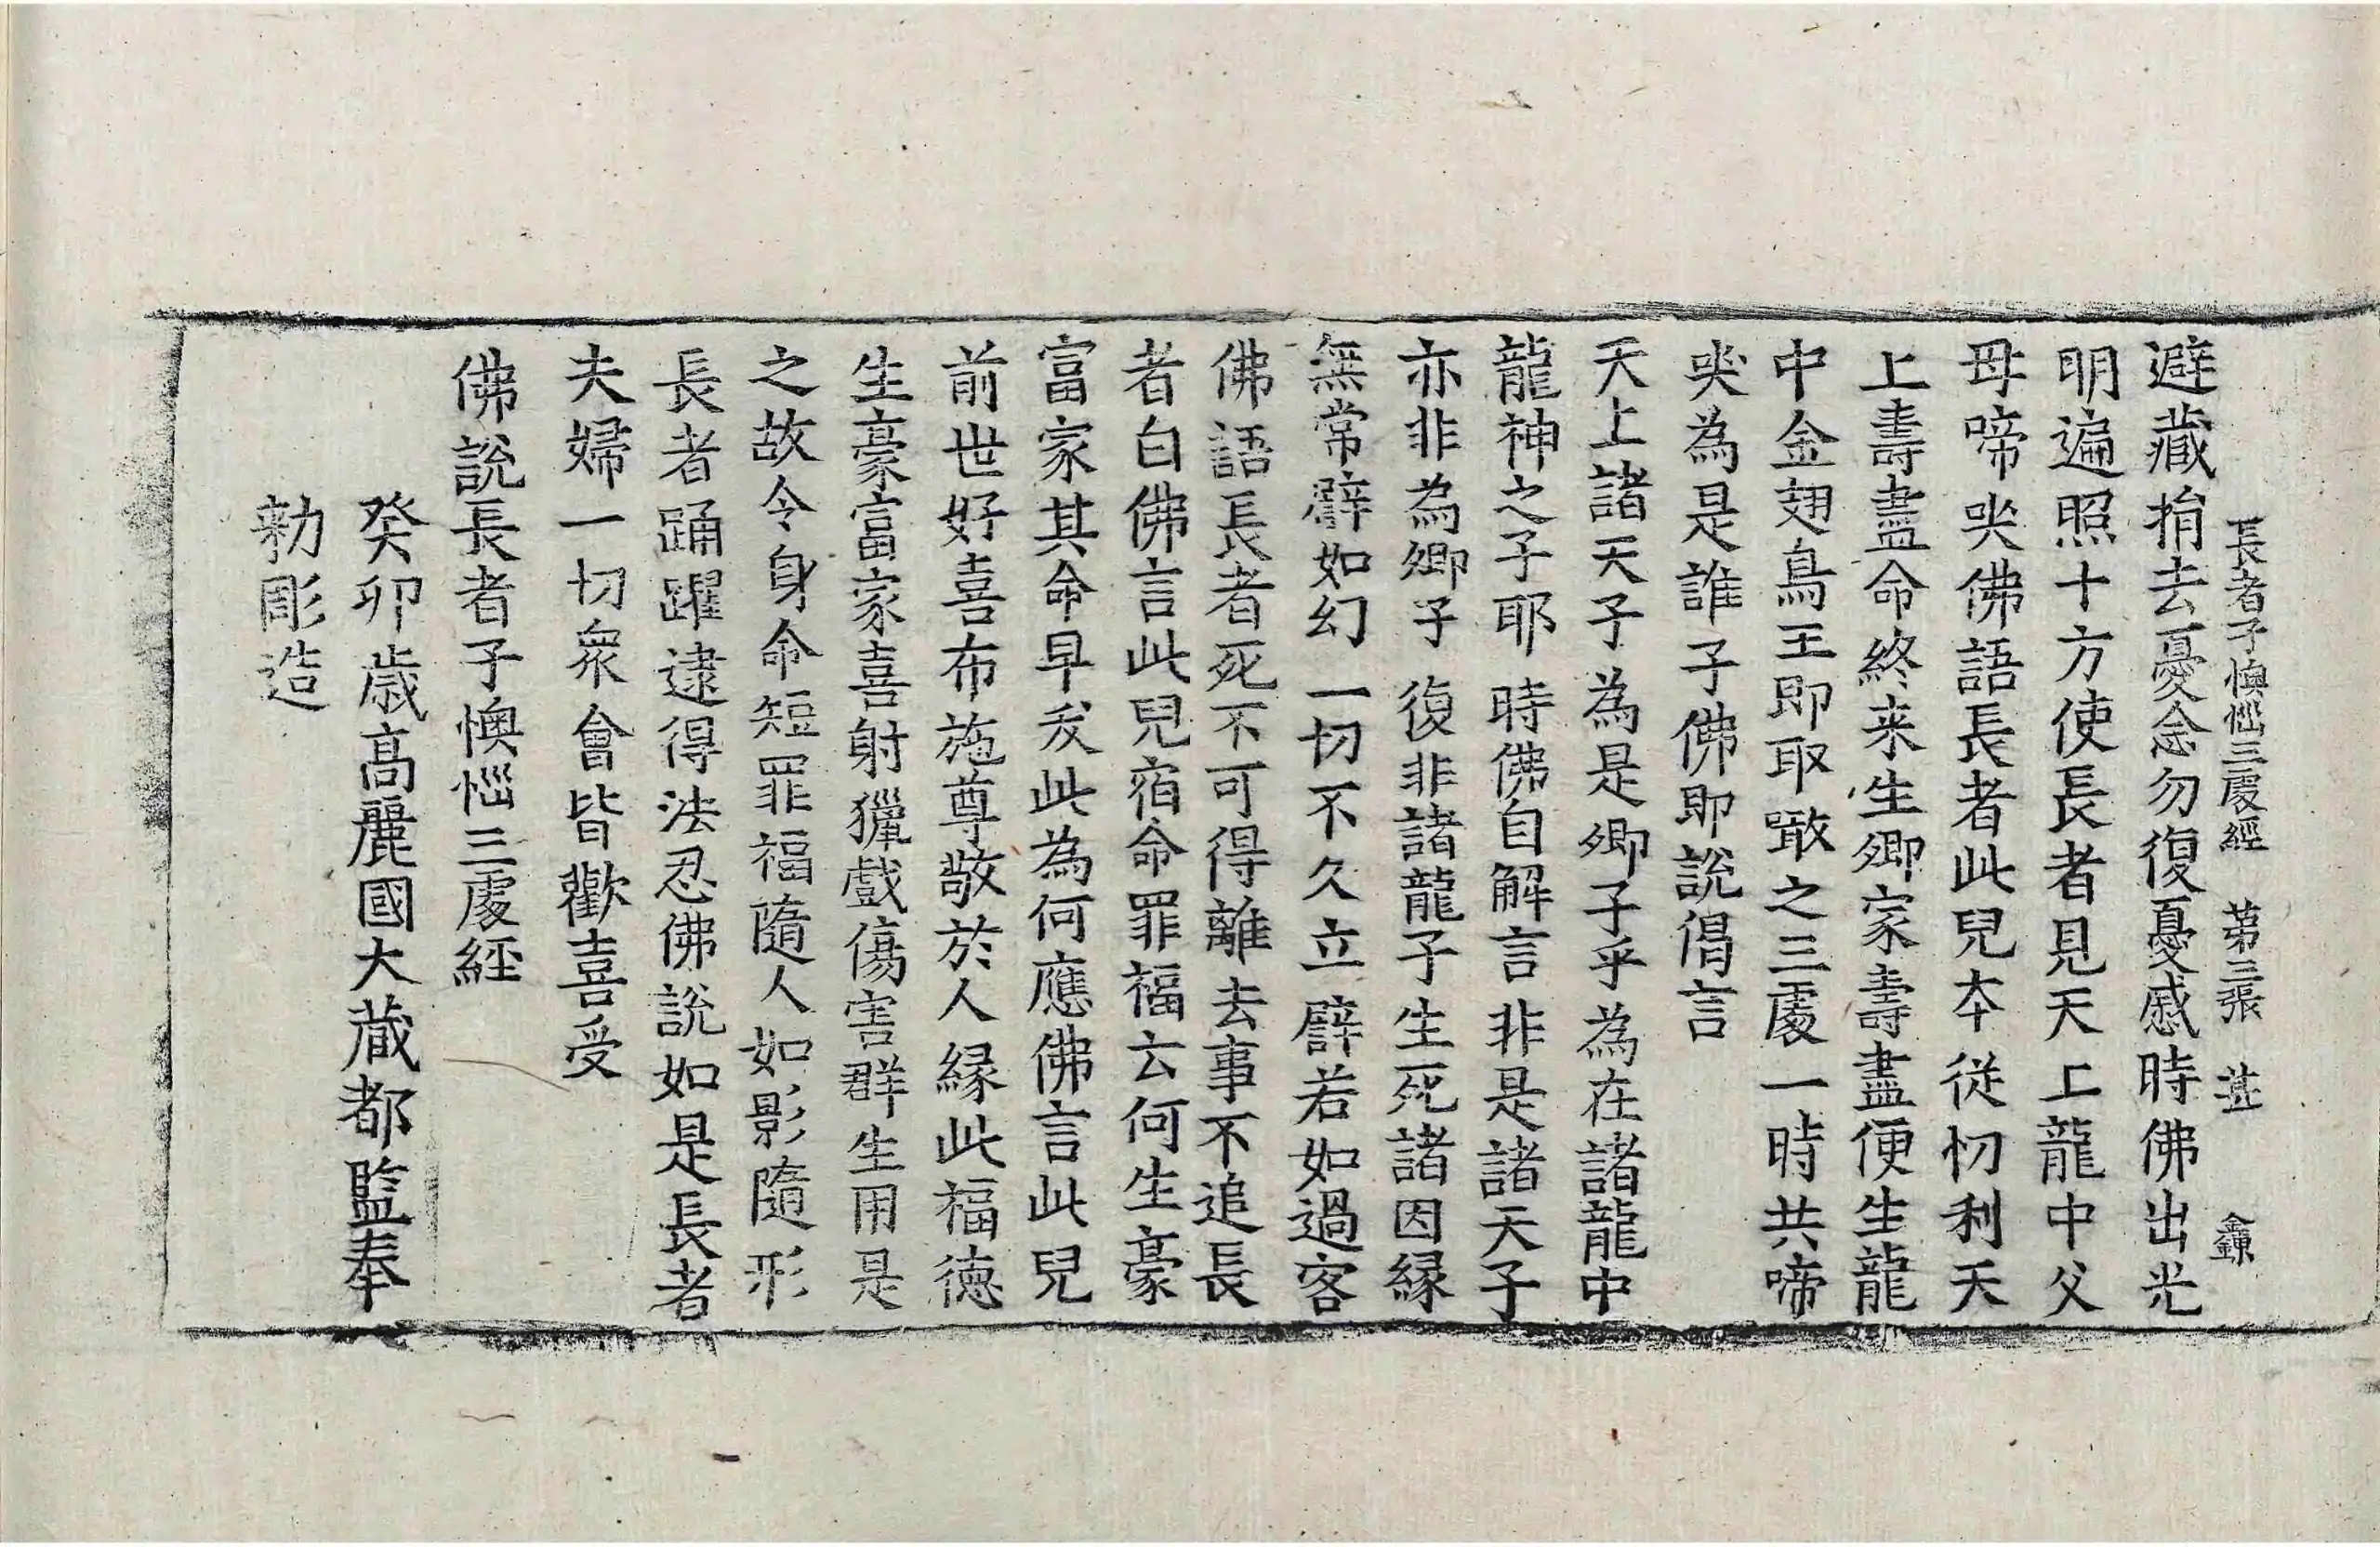 長者子懊惱三處經 第三張 甚 鐮
避藏捐去憂念勿復憂慼時佛出光
明遍照十方使長者見天上龍中父
母啼哭佛語長者此兒本從忉利天
上壽盡命終来生卿家壽盡便生龍
中金翅鳥王即取噉之三處一時共啼
哭為是誰子佛即說偈言
天上諸天子 為是卿子乎 為在諸龍中
龍神之子耶 時佛自解言 非是諸天子
亦非為卿子 復非諸龍子 生死諸因緣
無常譬如幻 一切不久立 譬若如過客
佛語長者死不可得離去事不追長
者白佛言此兒宿命罪福云何生豪
富家其命早夭此為何應佛言此兒
前世好喜布施尊敬於人緣此福德
生豪富家喜射獵戲傷害群生用是
之故令身命短罪福隨人如影隨形
長者踊躍逮得法忍佛說如是長者
夫婦一切衆會皆歡喜受
佛說長者子懊惱三處經
癸卯歳高麗國大藏都監奉
勅彫造